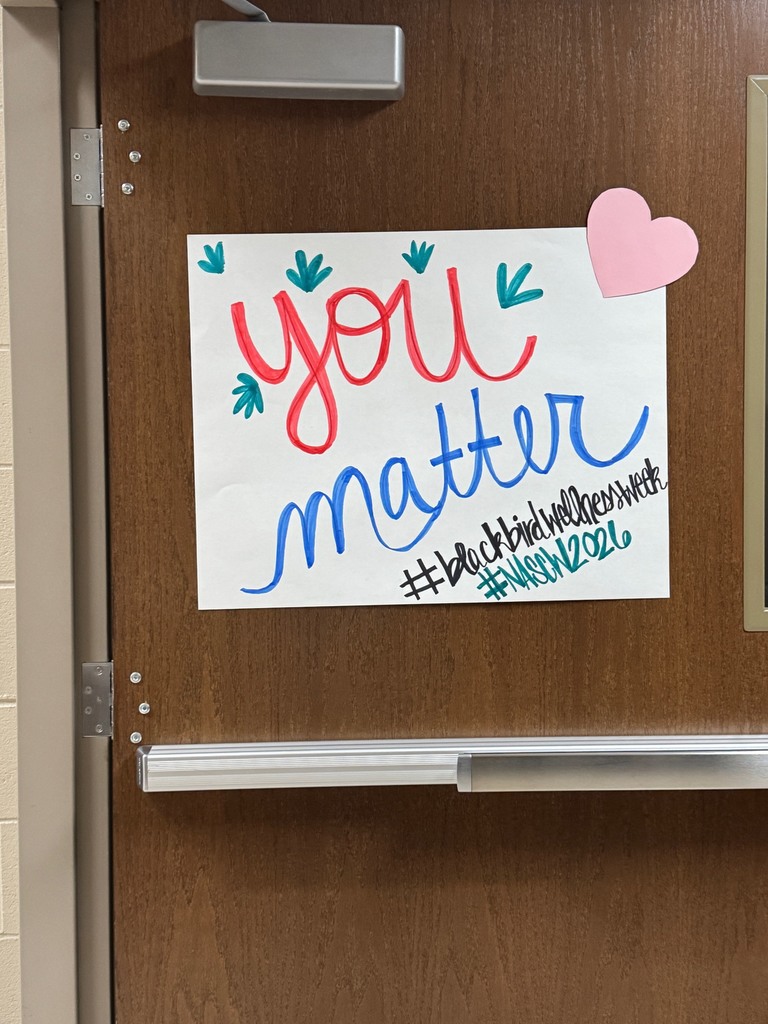 you
matter
#blackbirdwellnessweek
#NASCW2026